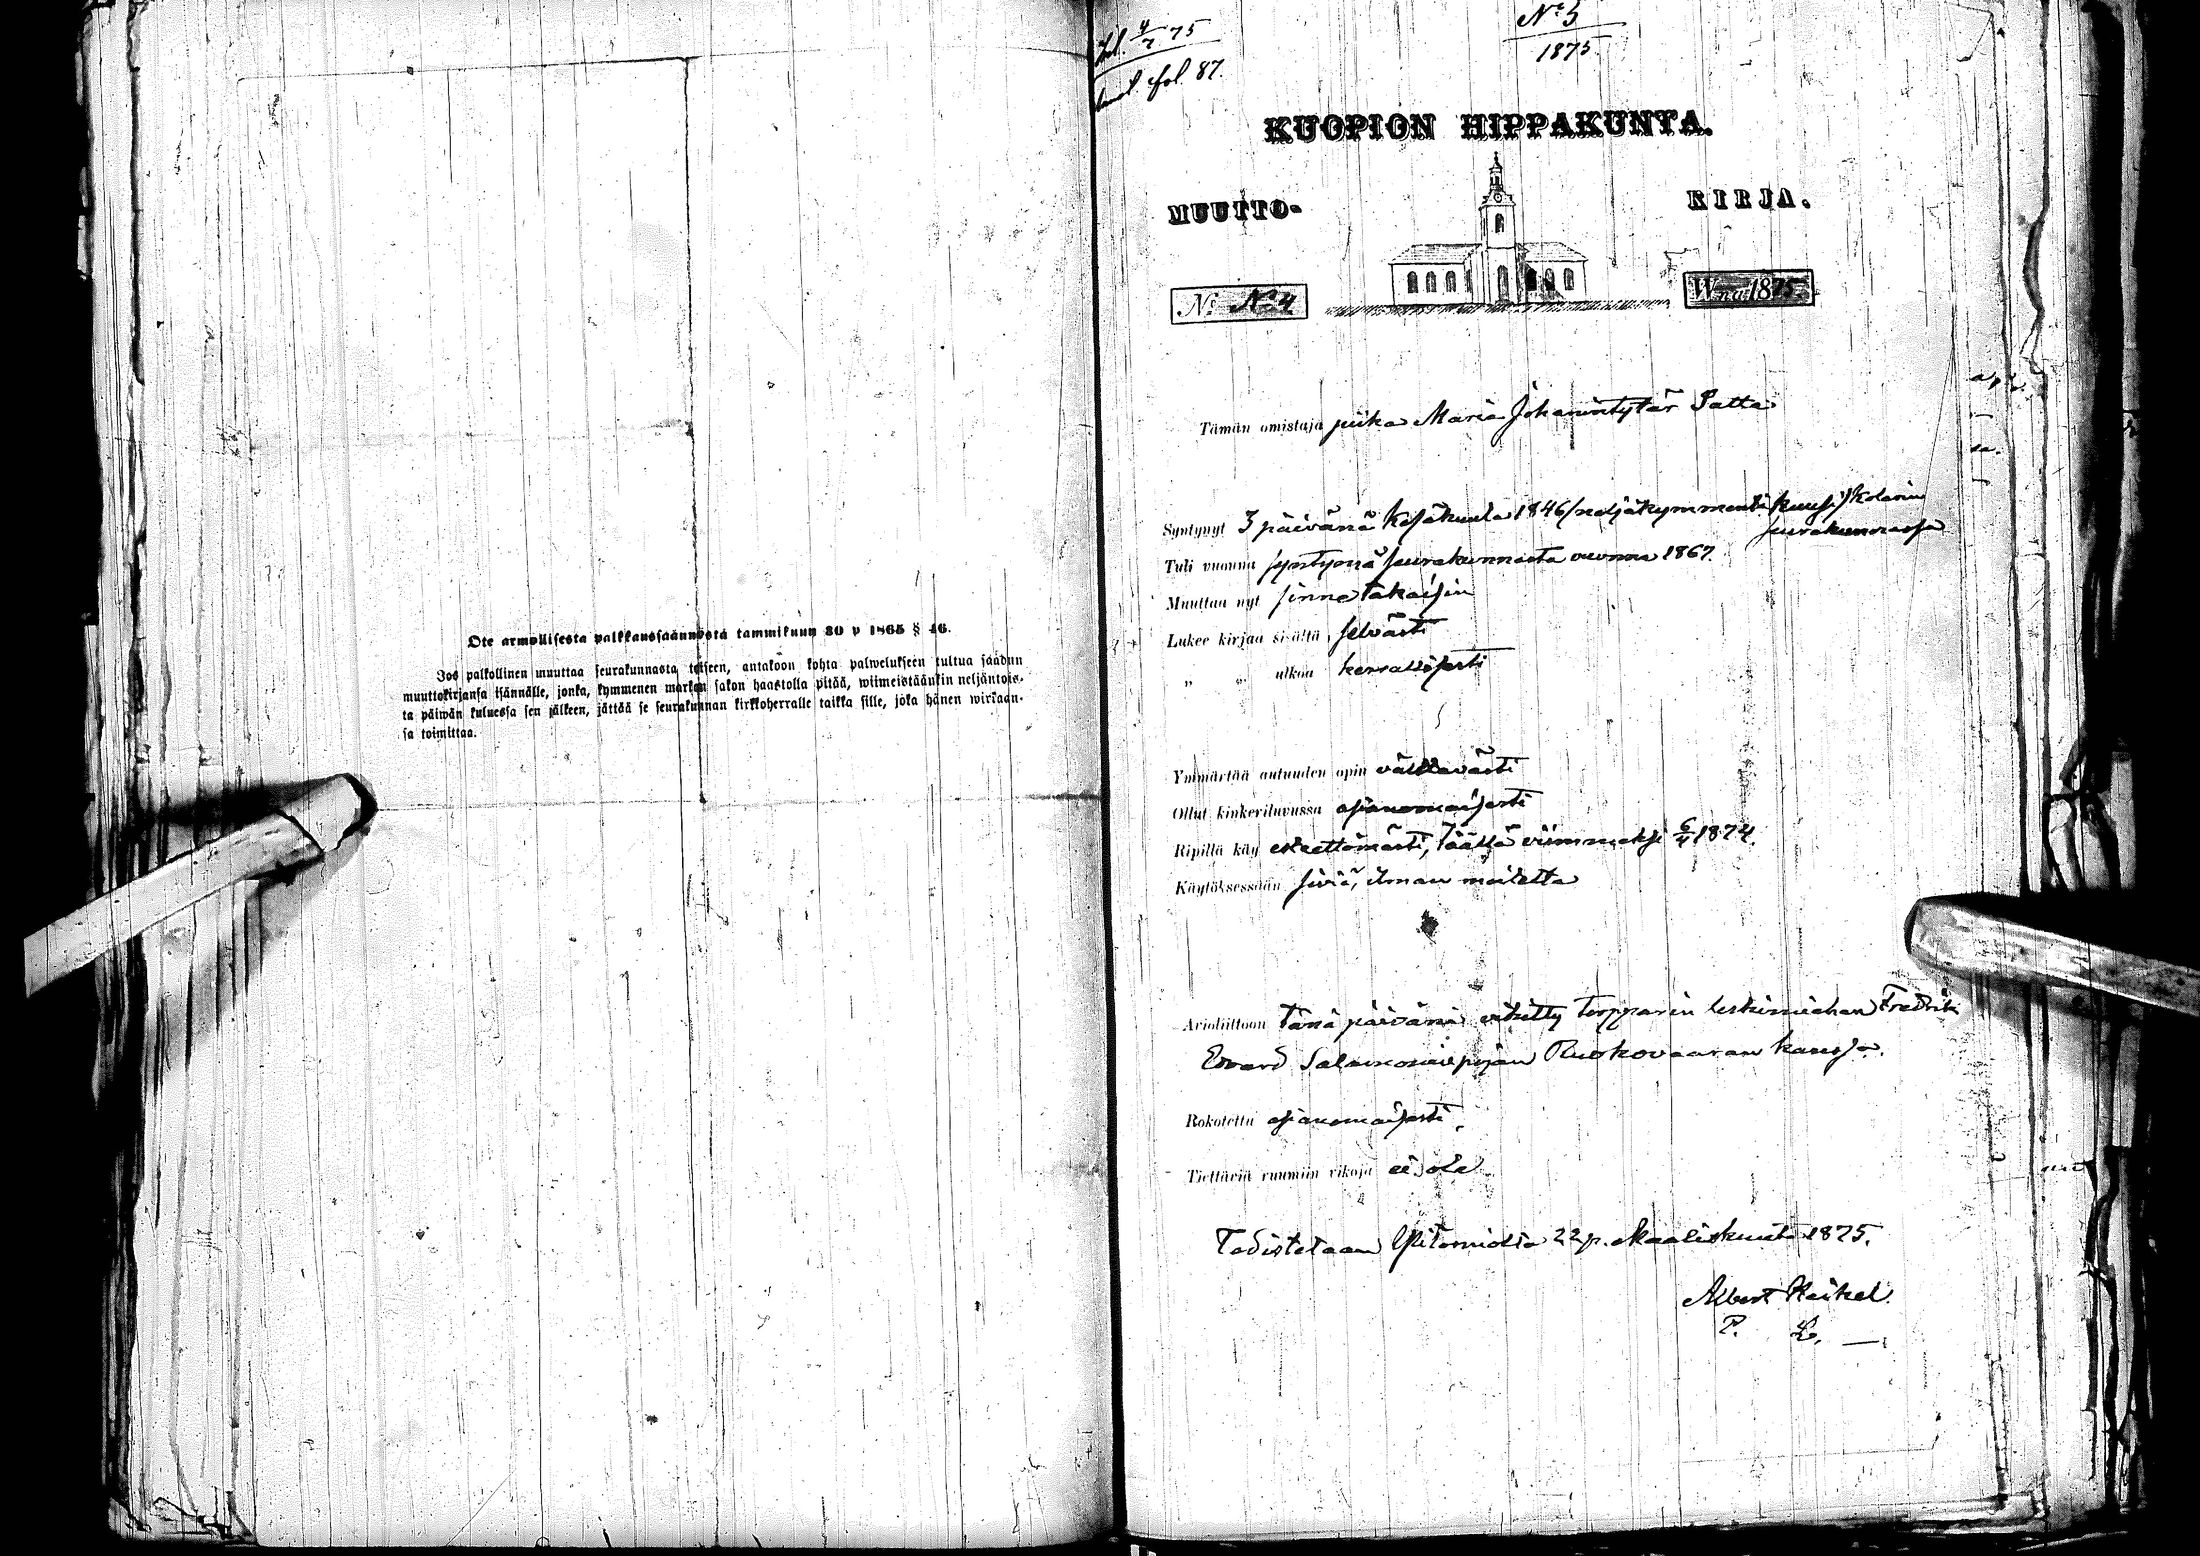 Ote armollisesta palkkaussäännöstä tammikuun 30 p 1865 § 46.
Jos palkollinen muuttaa seurakunnasta toiseen, antakoon kohta palwelukseen tultua säädyn
muuttokirjansa isännälle, jonka, kymmenen markan sakon haastolla pitää, wiimeistäänkin neljäntois-
ta päiwän kuluessa sen jälkeen, jättää se seurakunnan kirkkoherralle taikka sille, joka hänen wirkaan-
sa toimittaa.
4/7 75
fol. 87.
No 5
1875.
KUOPION HIPPAKUNTA.
MUUTTO- KIRJA.
N: No 4 W:na 1875.
Tämän omistaja piika Maria Johanintytär Patta
Syntynyt 3 päivänä Kesäkuuta 1846 (neljäkymmentä kuusi) Kolarin
seurakunnassa
Tuli vuonna syntymä seurakunnasta vuonna 1867.
Muuttaa nyt sinne takaisin
Lukee kirjaa sisältä selvästi
„ „ ulkoa kerrallisesti
Ymmärtää autuuden opin välttävästi
Ollut kinkeriluvussa asianomaisesti
Ripillä käy esteettömästi, täällä viimmeksi 6/4 1874.
Käytöksessään siviä, ilman moitetta
Avioliittoon tänä päivänä vihitty torpparin leskimiehen Fredrik
Edvard Salomoninpojan Ruokovaaran kanssa.
Rokotettu asianomaisesti.
Tiettäviä ruumiin vikoja ei ole.
Todistetaan Ylitorniolla 22 p. Maaliskuuta 1875.
Albert Heikel.
P. L.